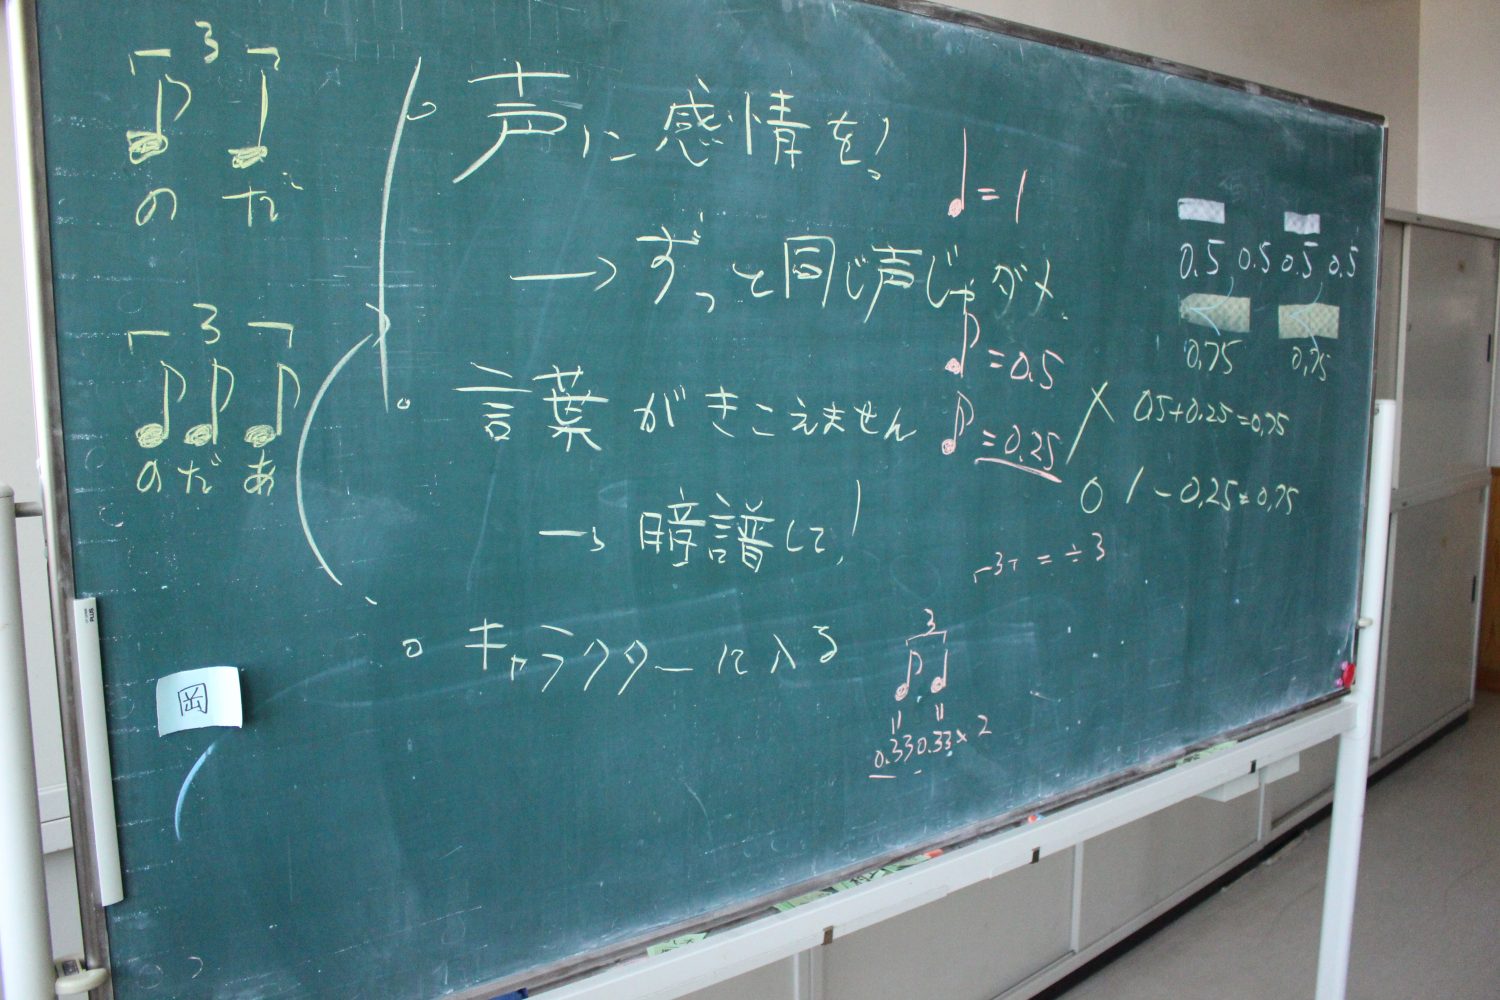 3
のだ
3
のだあ
声に感情を!
→ずっと同じ声じゃダメ
言葉がきこえません
→暗譜して!
キャラクターに入る
岡
♩=1
♪=0.5
♪=0.25
3 = ÷3
3
0.33 0.33×2
0.5 0.5 0.5 0.5
0.75 0.75
× 0.5+0.25=0.75
○ 1-0.25=0.75
PLUS